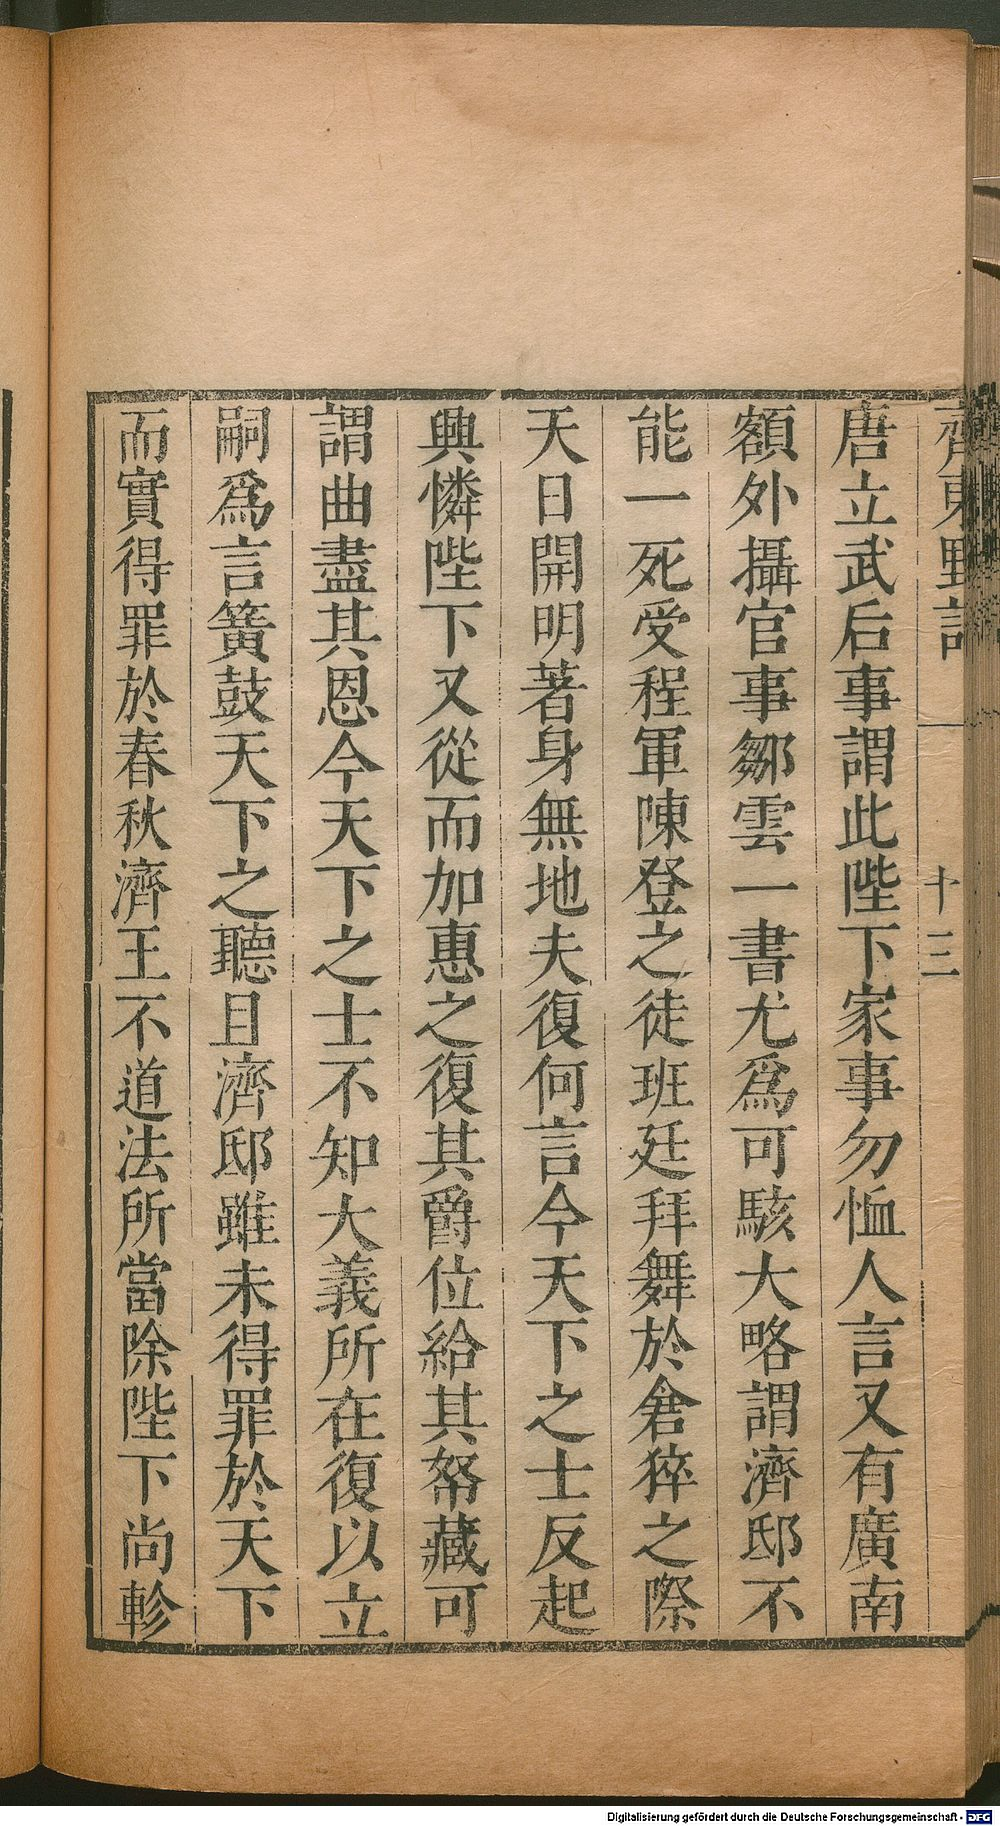 齊東野語
十三
唐立武后事謂此陛下家事勿恤人言又有廣南
額外攝官事鄒雲一書尤爲可駭大略謂濟邸不
能一死受程軍陳登之徒班廷拜舞於倉猝之際
天日開明著身無地夫復何言今天下之士反起
興憐陛下又從而加惠之復其爵位給其帑藏可
謂曲盡其恩今天下之士不知大義所在復以立
嗣爲言簧鼓天下之聽且濟邸雖未得罪於天下
而實得罪於春秋濟王不道法所當除陛下尚軫
Digitalisierung gefördert durch die Deutsche Forschungsgemeinschaft - DFG